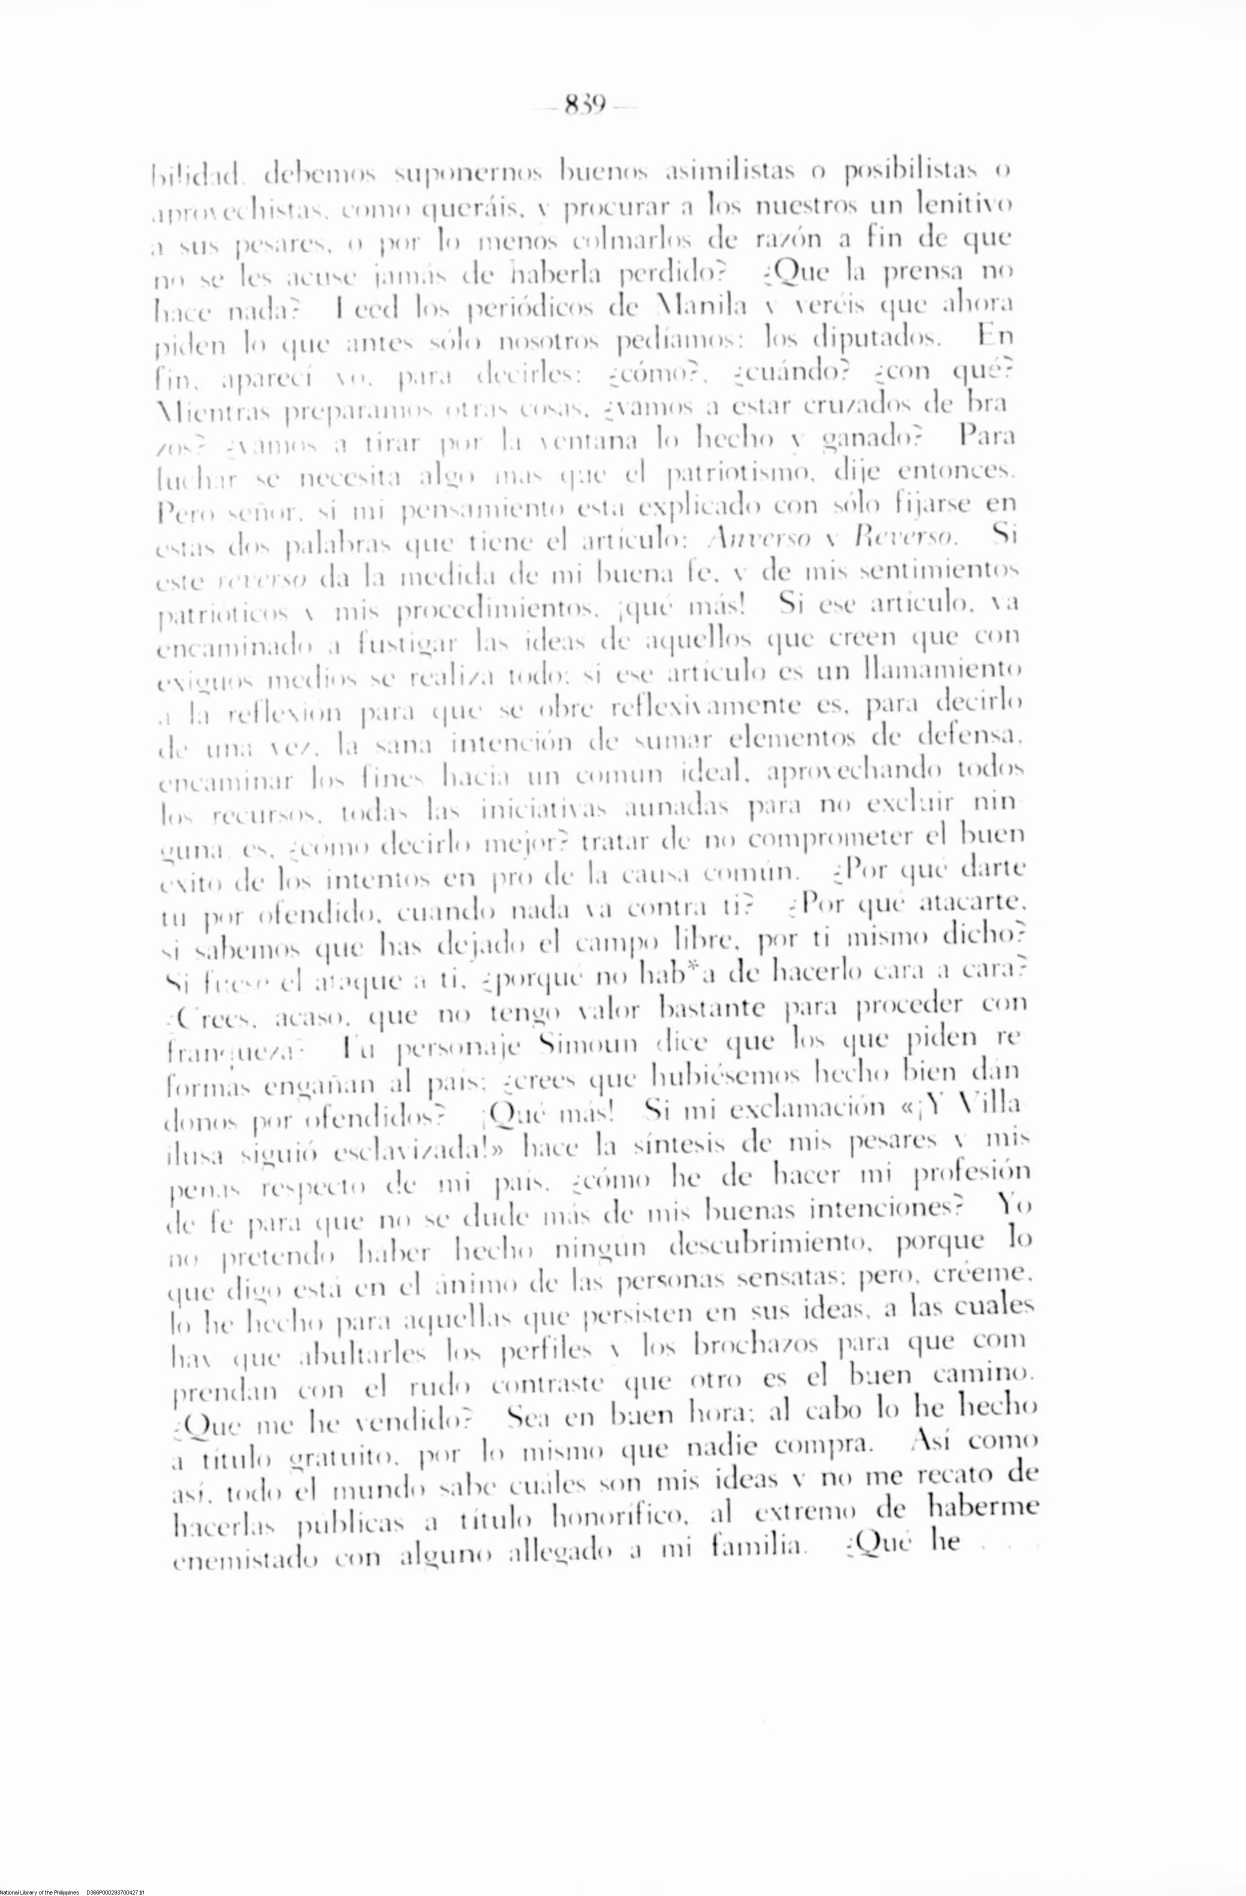 — 839 —
bilidad, debemos suponernos buenos asimilistas o posibilistas o
aprovechistas, como queráis, y procurar a los nuestros un lenitivo
a sus pesares, o por lo menos colmarlos de razón a fin de que
no se les acuse jamás de haberla perdido? ¿Que la prensa no
hace nada? Leed los periódicos de Manila y veréis que ahora
piden lo que antes sólo nosotros pedíamos: los diputados. En
fin, aparecí yo, para decirles: ¿cómo?, ¿cuándo? ¿con qué?
Mientras preparamos otras cosas, ¿vamos a estar cruzados de bra
zos? ¿vamos a tirar por la ventana lo hecho y ganado? Para
luchar se necesita algo más que el patriotismo, dije entonces.
Pero señor, si mi pensamiento está explicado con sólo fijarse en
estas dos palabras que tiene el artículo: Anverso y Reverso. Si
este reverso da la medida de mi buena fe, y de mis sentimientos
patrióticos y mis procedimientos, ¡qué más! Si ese artículo, va
encaminado a fustigar las ideas de aquellos que creen que con
exiguos medios se realiza todo; si ese artículo es un llamamiento
a la reflexión para que se obre reflexivamente es, para decirlo
de una vez, la sana intención de sumar elementos de defensa,
encaminar los fines hacia un común ideal, aprovechando todos
los recursos, todas las iniciativas aunadas para no excluir nin
guna; es, ¿cómo decirlo mejor? tratar de no comprometer el buen
éxito de los intentos en pró de la causa común. ¿Por qué darte
tú por ofendido, cuando nada va contra ti? ¿Por qué atacarte,
si sabemos que has dejado el campo libre, por ti mismo dicho?
Si fuese el ataque a ti, ¿porqué no hab*a de hacerlo cara a cara?
¿Crees, acaso, que no tengo valor bastante para proceder con
franqueza? Tu personaje Simoun dice que los que piden re
formas engañan al país; ¿crees que hubiésemos hecho bien dán
donos por ofendidos? ¡Qué más! Si mi exclamación «¡Y Villa
ilusa siguió esclavizada!» hace la síntesis de mis pesares y mis
penas respecto de mi país, ¿cómo he de hacer mi profesión
de fe para que no se dude más de mis buenas intenciones? Yo
no pretendo haber hecho ningún descubrimiento, porque lo
que digo está en el ánimo de las personas sensatas; pero, créeme,
lo he hecho para aquellas que persisten en sus ideas, a las cuales
hay que abultarles los perfiles y los brochazos para que com
prendan con el rudo contraste que otro es el buen camino.
¿Que me he vendido? Sea en buen hora; al cabo lo he hecho
a título gratuito, por lo mismo que nadie compra. Así como
así, todo el mundo sabe cuáles son mis ideas y no me recato de
hacerlas públicas a título honorífico, al extremo de haberme
enemistado con alguno allegado a mi familia. ¿Qué he . . .
National Library of the Philippines